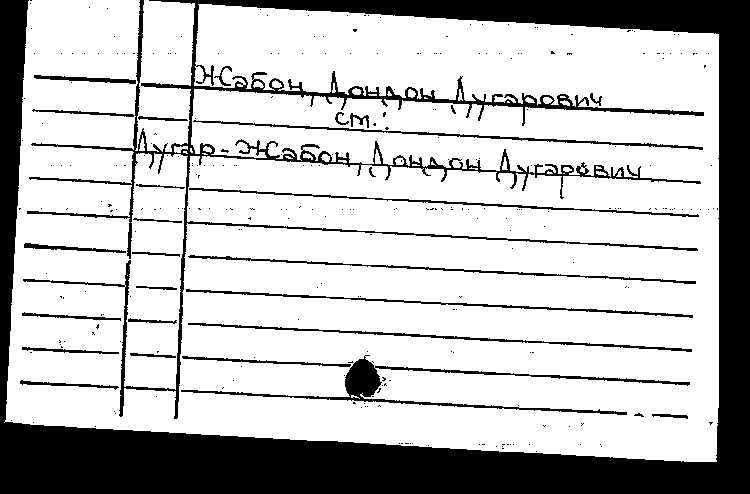 Жабон, Дондон Дугарович
см.:
Дугар-Жабон, Дондон Дугарович